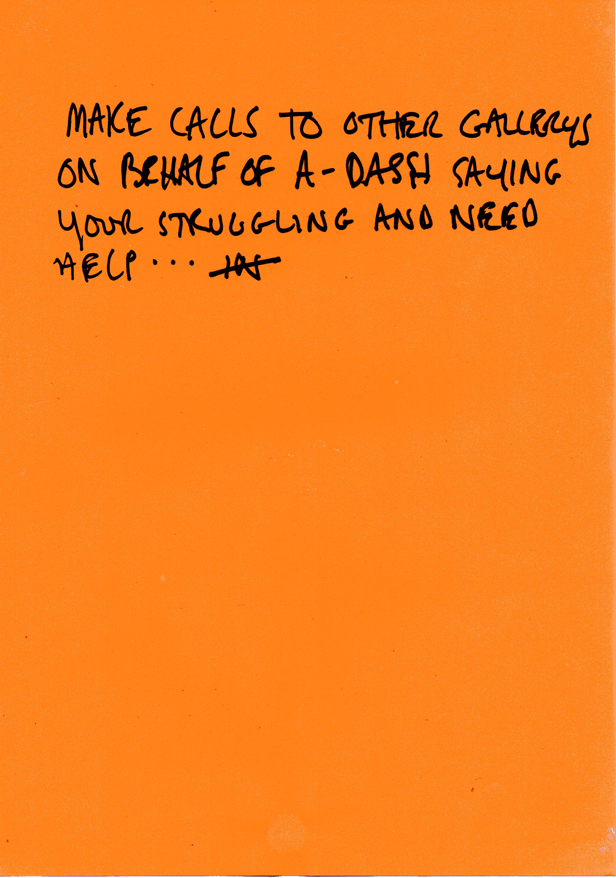 MAKE CALLS TO OTHER GALLERYS
ON BEHALF OF A-DASH SAYING
YOUR STRUGGLING AND NEED
HELP...